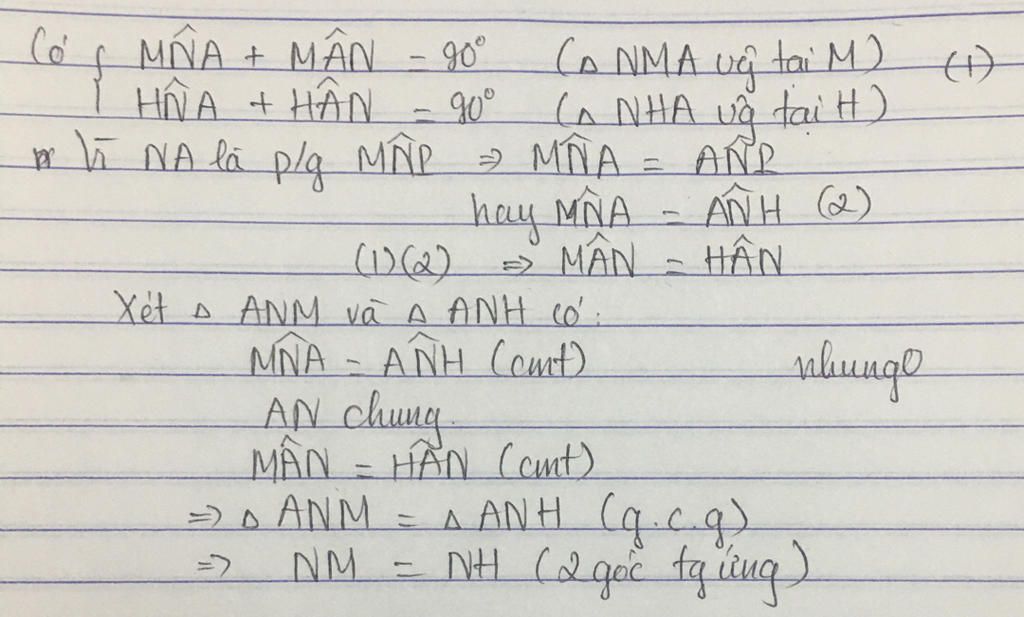 Có { MN̂A + MÂN = 90° (Δ NMA vg̃ tại M) (1)
HN̂A + HÂN = 90° (Δ NHA vg̃ tại H)
Vì NA là p/g MN̂P ⇒ MN̂A = AN̂P
hay MN̂A = AN̂H (2)
(1)(2) ⇒ MÂN = HÂN
Xét Δ ANM và Δ ANH có:
MN̂A = AN̂H (cmt) nhung0
AN chung.
MÂN = HÂN (cmt)
⇒ Δ ANM = Δ ANH (g.c.g)
⇒ NM = NH (2 góc tg ứng)